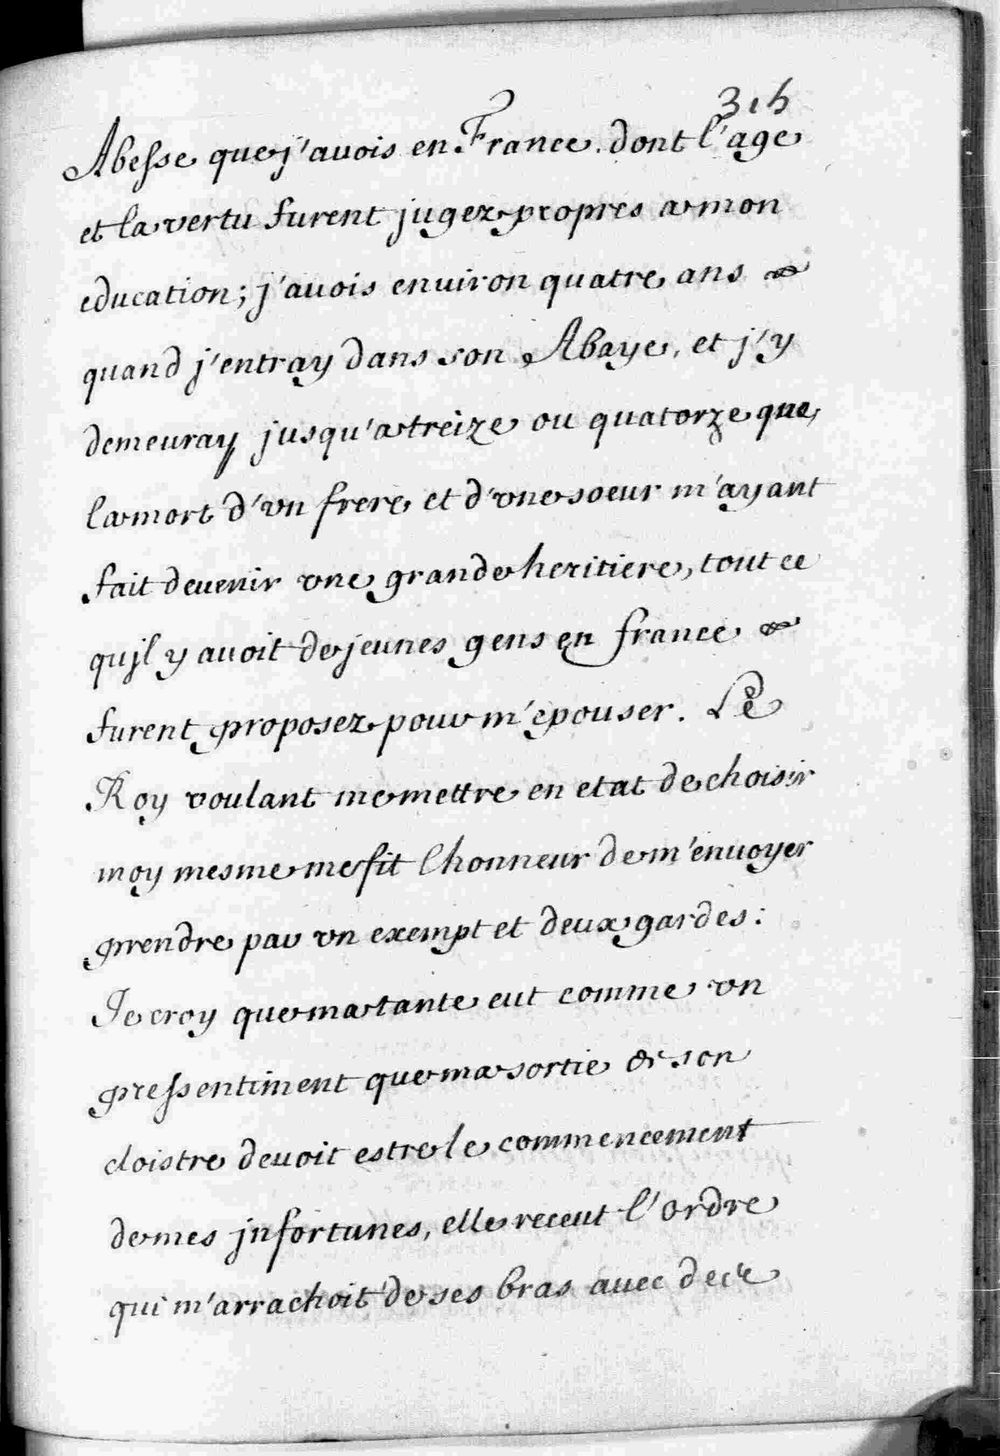 315
Abesse que j'auois en France. dont l'age
et la vertu furent jugez propres a mon
education; j'auois enuiron quatre ans
quand j'entray dans son Abaye, et j'y
demeuray jusqu'a treize ou quatorze que,
la mort d'vn frere et d'vne soeur m'ayant
fait deuenir vne grande heritiere, tout ce
qujl y auoit de jeunes gens en france
furent proposez pour m'epouser. Le
Roy voulant me mettre en etat de choisir
moy mesme me fit lhonneur de m'enuoyer
prendre par vn exempt et deux gardes:
Je croy que ma tante eut comme vn
pressentiment que ma sortie de son
cloistre deuoit estre le commencement
de mes jnfortunes, elle receut l'ordre
qui m'arrachoit de ses bras auec